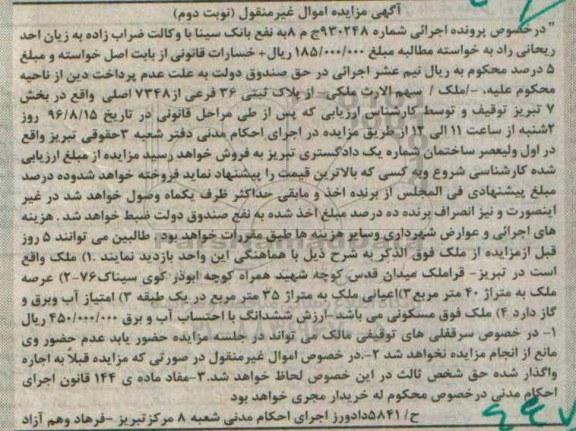 آگهی مزایده اموال غیرمنقول (نوبت دوم)
" درخصوص پرونده اجرائی شماره ۹۳۰۲۴۸ج م ۸به نفع بانک سینا با وکالت ضراب زاده به زیان احد
ریحانی راد به خواسته مطالبه مبلغ ۱۸۵/۰۰۰/۰۰۰ ریال+ خسارات قانونی از بابت اصل خواسته و مبلغ
۵ درصد محکوم به ریال نیم عشر اجرائی در حق صندوق دولت به علت عدم پرداخت دین از ناحیه
محکوم علیه، -/ملک / سهم الارث ملکی – از پلاک ثبتی ۳۶ فرعی از۷۳۴۸ اصلی واقع در بخش
۷ تبریز توقیف و توسط کارشناس ارزیابی که پس از طی مراحل قانونی در تاریخ ۹۶/۸/۱۵ روز
۲شنبه از ساعت ۱۱ الی ۱۲ از طریق مزایده در اجرای احکام مدنی دفتر شعبه ۳حقوقی تبریز واقع
در اول ولیعصر ساختمان شماره یک دادگستری تبریز به فروش خواهد رسید مزایده از مبلغ ارزیابی
شده کارشناسی شروع وبه کسی که بالاترین قیمت را پیشنهاد نماید فروخته خواهد شدوده درصد
مبلغ پیشنهادی فی المجلس از برنده اخذ و مابقی حداکثر ظرف یکماه وصول خواهد شد در غیر
اینصورت و نیز انصراف برنده ده درصد مبلغ اخذ شده به نفع صندوق دولت ضبط خواهد شد . هزینه
های اجرائی و عوارض شهرداری وسایر هزینه ها طبق مقررات خواهد بود . طالبین می توانند ۵ روز
قبل ازمزایده از ملک فوق الذکر به شرح ذیل با هماهنگی این واحد بازدید نمایند .۱) ملک واقع
است در تبریز- قراملک میدان قدس کوچه شهید همراه کوچه ابوذر کوی سیناک۷۶-۲) عرصه
ملک به متراژ ۴۰ متر مربع ۳)اعیانی ملک به متراژ ۳۵ متر مربع در یک طبقه ۳) امتیاز آب وبرق و
گاز دارد ۴) ملک فوق مسکونی می باشد-ارزش ششدانگ با احتساب آب و برق ۴۵۰/۰۰۰/۰۰۰ ریال
۱- در خصوص سرقفلی های توقیفی مالک می تواند در جلسه مزایده حضور یابد عدم حضور وی
مانع از انجام مزایده نخواهد شد ۲-.در خصوص اموال غیرمنقول در صورتی که مزایده قبلا به اجاره
واگذار شده حق شخص ثالث در این خصوص لحاظ خواهد شد.۳-مفاد ماده ی ۱۴۴ قانون اجرای
احکام مدنی درخصوص محکوم له خریدار مجری خواهد بود
ح/ ۵۸۴۱دادورز اجرای احکام مدنی شعبه ۸ مرکزتبریز –فرهاد وهم آزاد